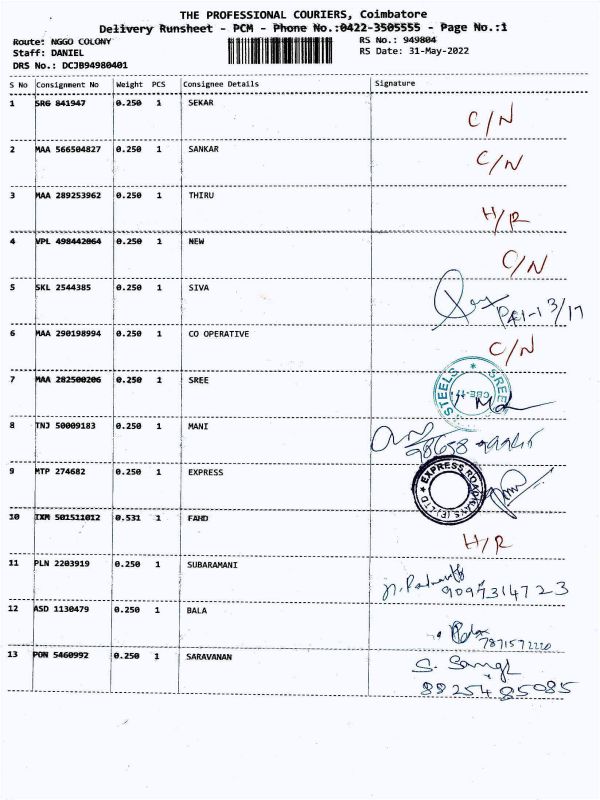 THE PROFESSIONAL COURIERS, Coimbatore
Delivery Runsheet - PCM - Phone No.:0422-3505555 - Page No.:1
Route: NGGO COLONY RS No.: 949804
Staff: DANIEL RS Date: 31-May-2022
DRS No.: DCJB94980401
S No Consignment No Weight PCS Consignee Details Signature
1 SRG 841947 0.250 1 SEKAR C/N
2 MAA 566504827 0.250 1 SANKAR C/N
3 MAA 289253962 0.250 1 THIRU H/R
4 VPL 498442064 0.250 1 NEW C/N
5 SKL 2544385 0.250 1 SIVA
6 MAA 290198994 0.250 1 CO OPERATIVE C/N
7 MAA 282500206 0.250 1 SREE SREE STEELS
8 TNJ 50009183 0.250 1 MANI
9 MTP 274682 0.250 1 EXPRESS
10 IXM 501511012 0.531 1 FAHD H/R
11 PLN 2203919 0.250 1 SUBARAMANI
12 ASD 1130479 0.250 1 BALA
7871572220
13 PON 5460992 0.250 1 SARAVANAN
8825485085